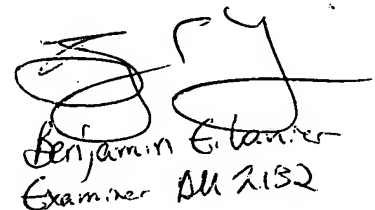 Benjamin E. Lanier
Examiner AU 2132